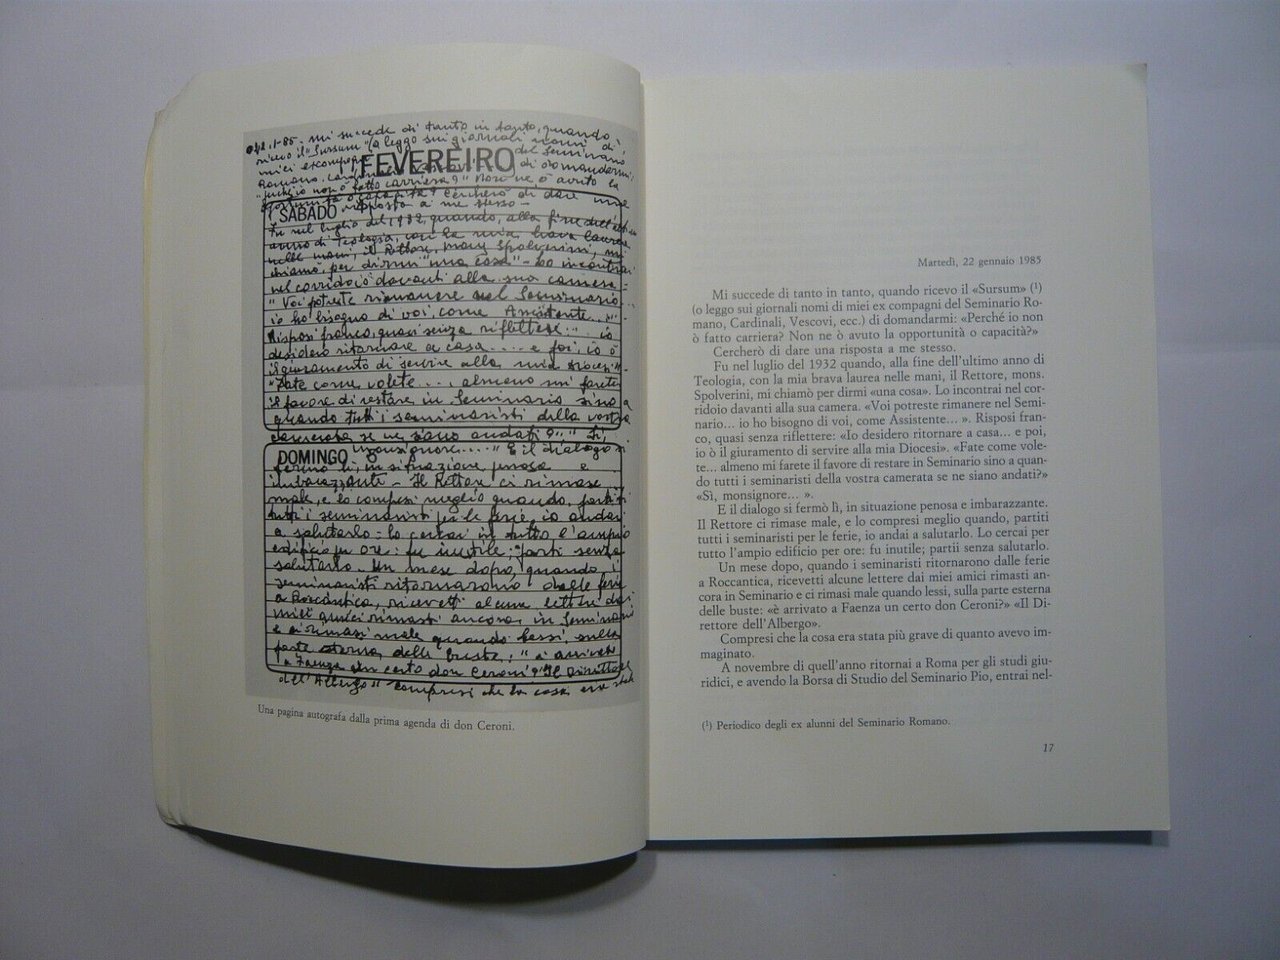 22.1-85 - Mi succede di tanto in tanto, quando
ricevo il "Sursum" (o leggo sui giornali nomi di
miei ex compagni del Seminario
Romano, di domandarmi:
"perché io non ò fatto carriera?" Non ne ò avuto la
opportunità o capacità? Cercherò di dare una
risposta a me stesso -
FEVEREIRO
SÁBADO
Fu nel luglio del 1932, quando, alla fine dell'ultimo
anno di Teologia, con la mia brava laurea
nelle mani, il Rettore, mons. Spolverini, mi
chiamò per dirmi "una cosa" - Lo incontrai
nel corridoio davanti alla sua camera -
"Voi potreste rimanere nel Seminario...
io ho bisogno di voi, come Assistente..."
Risposi franco, quasi senza riflettere: "io
desidero ritornare a casa.... e poi, io ò
il giuramento di servire alla mia Diocesi" -
"Fate come volete.... almeno mi farete
il favore di restare in Seminario sino a
quando tutti i seminaristi della vostra
camerata se ne siano andati?" - "Sì,
monsignore...." E il dialogo si
DOMINGO
fermò lì, in situazione penosa e
imbarazzante - Il Rettore ci rimase
male, e lo compresi meglio quando, partiti
tutti i seminaristi per le ferie, io andai
a salutarlo: lo cercai in tutto l'ampio
edificio per ore: fu inutile; partii senza
salutarlo. Un mese dopo, quando i
seminaristi ritornarono dalle ferie
a Roccantica, ricevetti alcune lettere dai
miei amici rimasti ancora in Seminario
e ci rimasi male quando lessi, sulla
parte esterna delle buste: "è arrivato
a Faenza un certo don Ceroni?" "Il Direttore
dell'Albergo" Compresi che la cosa era stata
Una pagina autografa dalla prima agenda di don Ceroni.
Martedì, 22 gennaio 1985
Mi succede di tanto in tanto, quando ricevo il «Sursum» (¹)
(o leggo sui giornali nomi di miei ex compagni del Seminario Ro-
mano, Cardinali, Vescovi, ecc.) di domandarmi: «Perché io non
ò fatto carriera? Non ne ò avuto la opportunità o capacità?»
Cercherò di dare una risposta a me stesso.
Fu nel luglio del 1932 quando, alla fine dell'ultimo anno di
Teologia, con la mia brava laurea nelle mani, il Rettore, mons.
Spolverini, mi chiamò per dirmi «una cosa». Lo incontrai nel cor-
ridoio davanti alla sua camera. «Voi potreste rimanere nel Semi-
nario... io ho bisogno di voi, come Assistente... ». Risposi fran-
co, quasi senza riflettere: «Io desidero ritornare a casa... e poi,
io ò il giuramento di servire alla mia Diocesi». «Fate come vole-
te... almeno mi farete il favore di restare in Seminario sino a quan-
do tutti i seminaristi della vostra camerata se ne siano andati?»
«Sì, monsignore... ».
E il dialogo si fermò lì, in situazione penosa e imbarazzante.
Il Rettore ci rimase male, e lo compresi meglio quando, partiti
tutti i seminaristi per le ferie, io andai a salutarlo. Lo cercai per
tutto l'ampio edificio per ore: fu inutile; partii senza salutarlo.
Un mese dopo, quando i seminaristi ritornarono dalle ferie
a Roccantica, ricevetti alcune lettere dai miei amici rimasti an-
cora in Seminario e ci rimasi male quando lessi, sulla parte esterna
delle buste: «è arrivato a Faenza un certo don Ceroni?» «Il Di-
rettore dell'Albergo».
Compresi che la cosa era stata più grave di quanto avevo im-
maginato.
A novembre di quell'anno ritornai a Roma per gli studi giu-
ridici, e avendo la Borsa di Studio del Seminario Pio, entrai nel-
(¹) Periodico degli ex alunni del Seminario Romano.
17